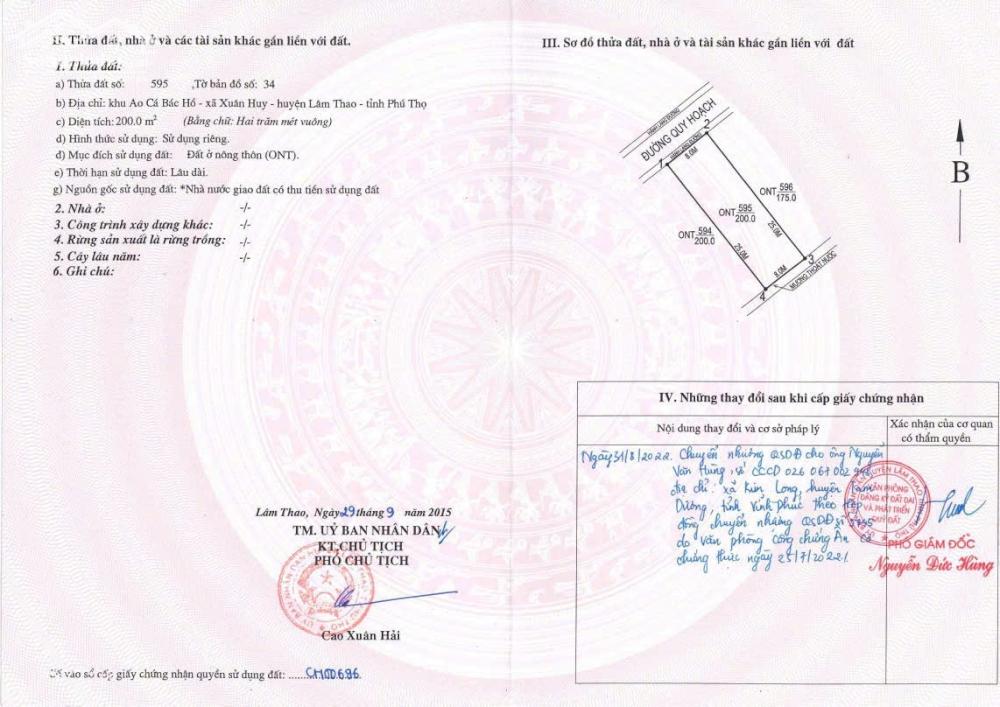 II. Thửa đất, nhà ở và các tài sản khác gắn liền với đất.
1. Thửa đất:
a) Thửa đất số: 595 ,Tờ bản đồ số: 34
b) Địa chỉ: khu Ao Cá Bác Hồ - xã Xuân Huy - huyện Lâm Thao - tỉnh Phú Thọ
c) Diện tích: 200.0 m² (Bằng chữ: Hai trăm mét vuông)
d) Hình thức sử dụng: Sử dụng riêng.
đ) Mục đích sử dụng đất: Đất ở nông thôn (ONT).
e) Thời hạn sử dụng đất: Lâu dài.
g) Nguồn gốc sử dụng đất: *Nhà nước giao đất có thu tiền sử dụng đất
2. Nhà ở: -/-
3. Công trình xây dựng khác: -/-
4. Rừng sản xuất là rừng trồng: -/-
5. Cây lâu năm: -/-
6. Ghi chú:
Lâm Thao, Ngày 29 tháng 9 năm 2015
TM. UỶ BAN NHÂN DÂN
KT CHỦ TỊCH
PHÓ CHỦ TỊCH
Cao Xuân Hải
vào sổ cấp giấy chứng nhận quyền sử dụng đất: ......CH00696.
III. Sơ đồ thửa đất, nhà ở và tài sản khác gắn liền với đất
HÀNH LANG ĐƯỜNG
ĐƯỜNG QUY HOẠCH
HÀNH LANG ĐƯỜNG
1
2
8.0M
ONT 596
175.0
ONT 595
200.0
ONT 594
200.0
25.0M
25.0M
8.0M
3
4
MƯƠNG THOÁT NƯỚC
B
IV. Những thay đổi sau khi cấp giấy chứng nhận
Nội dung thay đổi và cơ sở pháp lý
Xác nhận của cơ quan
có thẩm quyền
Ngày 31/8/2022. Chuyển nhượng QSDĐ cho ông Nguyễn
Văn Hùng, số CCCD 026 067 002
địa chỉ: xã Kim Long, huyện Tam
Dương, tỉnh Vĩnh Phúc theo hợp
đồng chuyển nhượng QSDĐ số
do văn phòng công chứng Ân
chứng thực ngày 25/7/2022.
VĂN PHÒNG
ĐĂNG KÝ ĐẤT ĐAI
VÀ PHÁT TRIỂN
QUỸ ĐẤT
PHÓ GIÁM ĐỐC
Nguyễn Đức Hùng